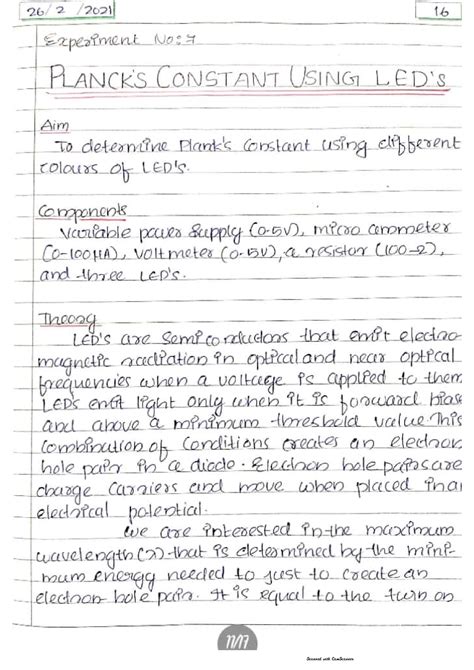 26/2/2021
16
Experiment No:7
PLANCK'S CONSTANT USING LED's
Aim
To determine Plank's Constant using different
colours of LED's.
Components
Variable power Supply (0-5V), micro ammeter
(0-100μA), Voltmeter (0-5V), a resistor (100Ω),
and three LED's.
Theory
LED's are Semiconductors that emit electro
magnetic radiation in optical and near optical
frequencies when a voltage is applied to them
LEDs emit light only when it is forward bias
and above a minimum threshold value. This
Combination of Conditions creates an electron
hole pair in a diode. Electron hole pairs are
charge Carriers and move when placed in an
electrical potential.
We are interested in the maximum
wavelength (λ) that is determined by the mini-
mum energy needed to just to create an
electron hole pair. It is equal to the turn on
11/17
Scanned with CamScanner